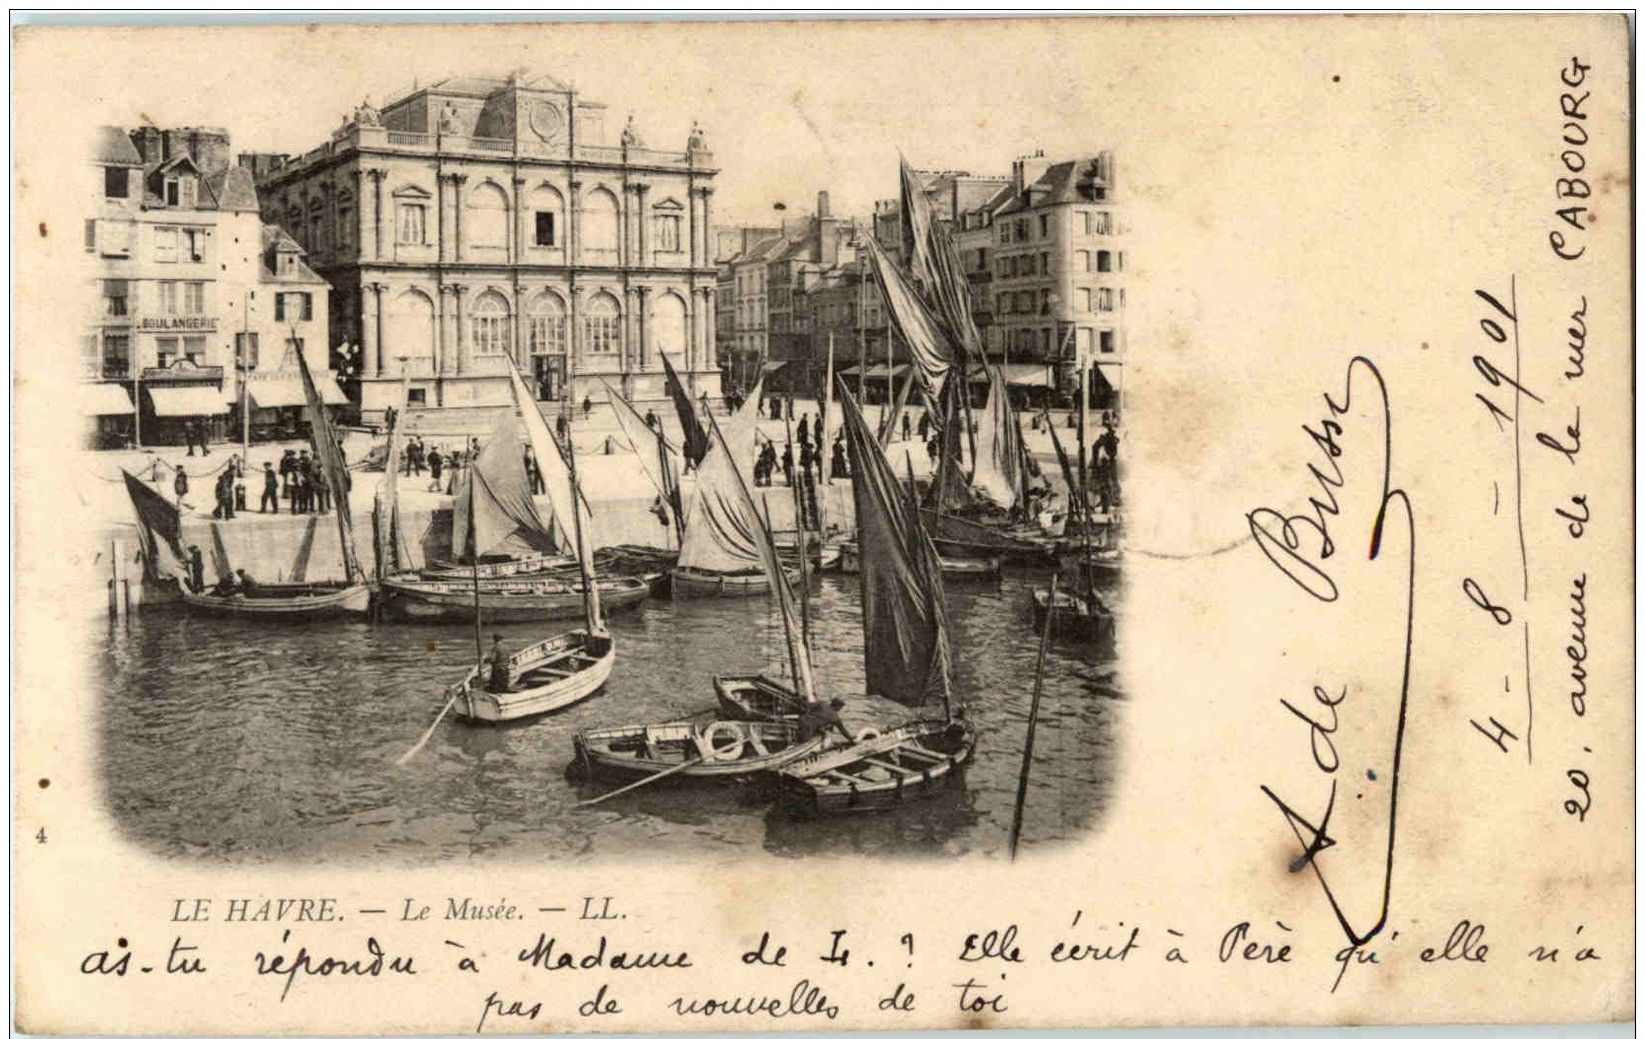 BOULANGERIE
4
LE HAVRE. — Le Musée. — LL.
as-tu répondu à Madame de ? Elle écrit à Père qu'elle n'a
pas de nouvelles de toi
A de Bussi
4 - 8 - 1901
20, avenue de la mer CABOURG